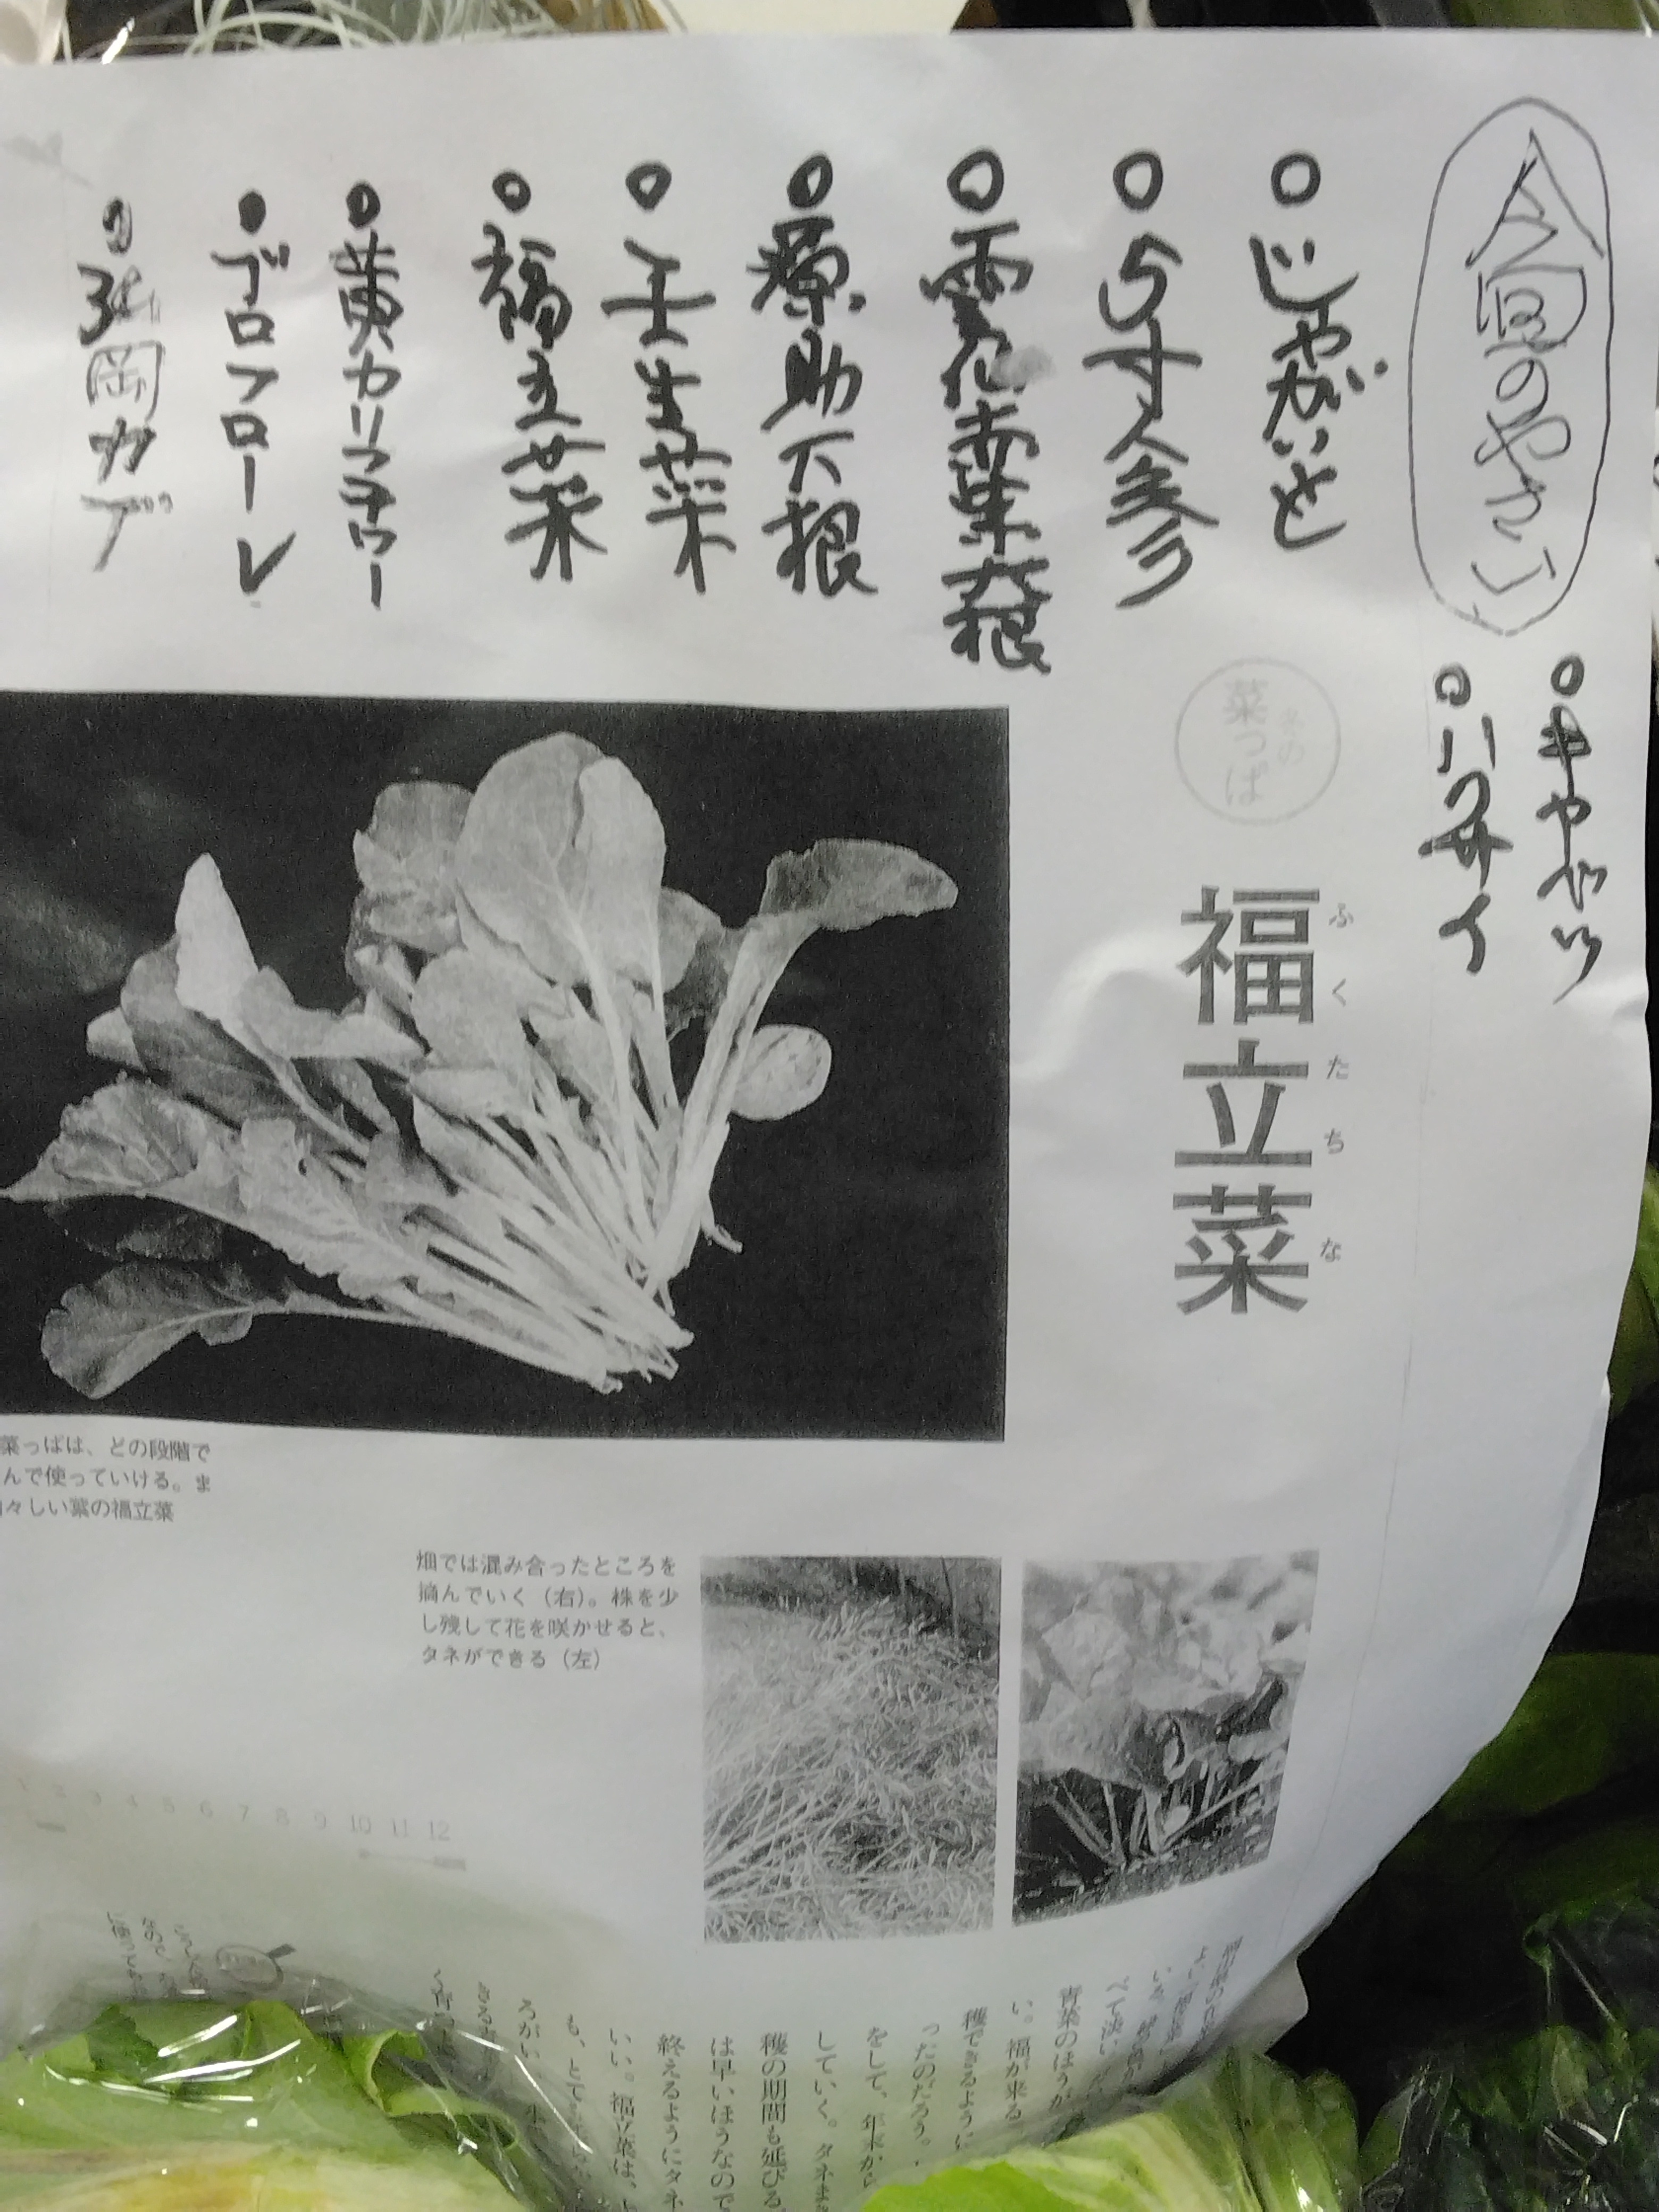 今回のやさい
○キャベツ
○ハクサイ
○じゃがいも
○5寸人参
○雲仙赤葉大根
○源助大根
○壬生菜
○福立菜
○黄カリフラワー
○ブロフローレ
○弘岡カブ
冬の
菜っぱ
ふくたちな
福立菜
菜っぱは、どの段階で
んで使っていける。ま
々しい葉の福立菜
畑では混み合ったところを
摘んでいく（右）。株を少
し残して花を咲かせると、
タネができる（左）
2 3 4 5 6 7 8 9 10 11 12
青菜のほうが
い。福が来る
穫できるように
ったのだろう。
をして、年末から
していく。タネま
穫の期間も延びる。
は早いほうなので
終えるようにタネ
いい。福立菜は、
も、とて
ろがい